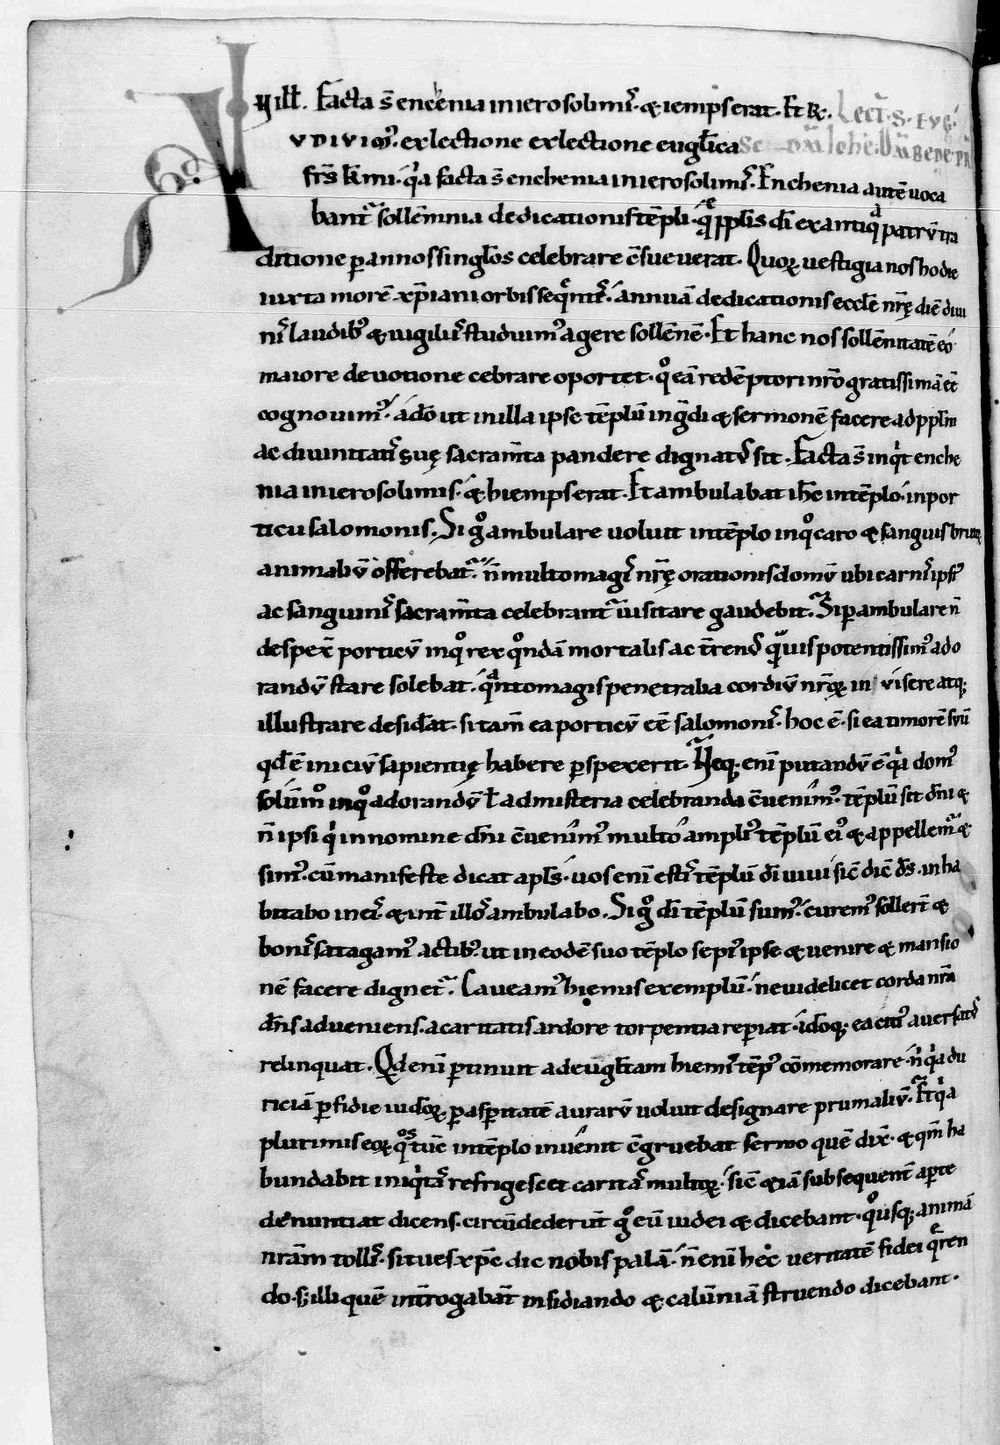 ij ill̄. Facta s̄ encenia in ierosolimis. & iemps erat. Et R̄. Lect̄. S. Evg̅.
VDIVIMꝰ. ex lectione ex lectione eug̅lica sc̄ dm̄ Iohē. Om̄ Bede. pr̄
frs̄ km̄i. q̇a facta s̄ enchenia in ierosolimis. Enchenia autē uoca
bant̄ sollēmnia dedicationis tēpli. quē ppl̄s dī ex antiqua patrū tra
ditione per annos singl̄os celebrare c̄sueuerat. Quoꝝ uestigia nos hodie
iuxta morē xp̄iani orbis sequentes. annuā dedicationis eccl̄e nr̄ę diē diui
nis laudibꝰ & uigiliis studuimꝰ agere sollēnē. Et hanc nos sollēnitatē eo
maiore deuotione cebrare oportet. qͦ eā redēptori nr̄o gratissimā eē
cognouimꝰ. adō ut in illa ipse tēplū ingdi & sermonē facere ad ppl̄m
ac diuinitatis suę sacram̄ta pandere dignatꝰ sit. Facta s̄ inqͥt enche
nia in ierosolimis. & hiemps erat. Et ambulabat ih̄c in tēplo. in por
ticu salomonis. Si gͦ ambulare uoluit in tēplo in qͦ caro & sanguis brutoꝝ
animaliū offerebat̄. n̄ multo magis nr̄ę orationis domū ubi carnis ipsiꝰ
ac sanguinis sacram̄ta celebrant̄ uisitare gaudebit. Si perambulare n̄
despex̄ porticū in qͦ rex qͦndā mortalis ac t̄renꝰ qͣuis potentissimꝰ ado
randū stare solebat. qͣnto magis penetralia cordiū nr̄oꝝ inuisere atq;
illustrare desid̄at. si tam̄ ea porticū eē salomonis. hoc ē. si ea timorē suū
qd̄ ē iniciū sapientię habere perspexerit. Neq; enī putandū ē qͥa domꝰ
solūmͦ in qͦ adorandū ł ad misteria celebranda c̄uenimꝰ. tēplū sit dn̄i &
n̄ ipsi qͥ in nomine dn̄i c̄uenimꝰ multo ampliꝰ tēplū eiꝰ & appellem̄ &
simꝰ. cū manifeste dicat apl̄s. uos enī estis tēplū dī uiui sic̄ dic̄ ds̄. inha
bitabo in eis. & int̄ illos ambulabo. Si gͦ dī tēplū sumꝰ. curemꝰ sollert̄ &
bonis satagamꝰ actibꝰ. ut in eodē suo tēplo sepiꝰ ipse & uenire & mansio
nē facere dignet̄. Caueamꝰ hiemis exemplū. ne uidelicet corda nr̄a
dn̄s adueniens. a caritatis ardore torpentia reperiat. idoq; ea citiꝰ auersatꝰ
relinquat. Qd̄ enī pertinuit ad eūg̅l̄istam hiemis tēpꝰ cōmemorare. n̄ qͥa du
riciā perfidie iudeoꝝ. per asperitatē auraꝝ uoluit designare brumaliū. Et qͥa
plurimis eoꝝ qͦs tūc in tēplo inuenit c̄gruebat sermo quē dix̄. & qm̄ ha
bundabit iniqͥtas refrigescet caritas multoꝝ. sic̄ & iā subsequent̄ aperte
denuntiat dicens. circūdederūt gͦ eū iudei & dicebant. qͦusq; animā
nr̄am tollis. si tu es xp̄c dic nobis palā. n̄ enī hęc ueritatē fidei quęren
do. s; illi quē int̄rogabant̄ insidiando & calūniā struendo dicebant.